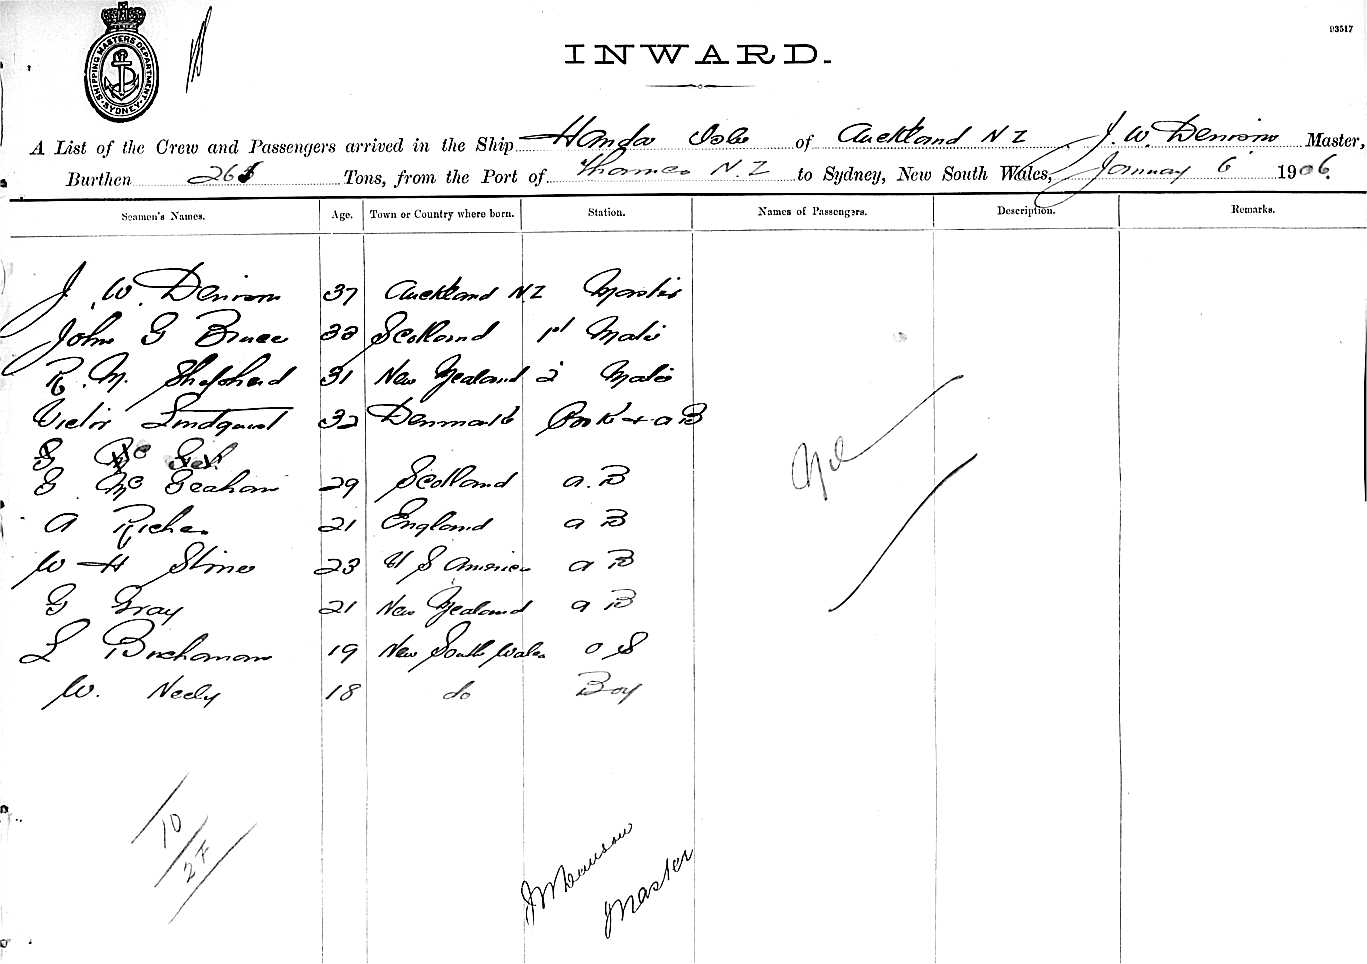 SHIPPING MASTERS DEPARTMENT SYDNEY
93517
INWARD.
A List of the Crew and Passengers arrived in the Ship Handa Isle of Auckland NZ J. W. Denison Master,
Burthen 263 Tons, from the Port of Thames N.Z to Sydney, New South Wales, January 6 1906.
Seamen's Names. Age. Town or Country where born. Station. Names of Passengers. Description. Remarks.
J. W. Denison 37 Auckland NZ Master
John G Bruce 33 Scotland 1st Mate
R. M. Shepherd 31 New Zealand 2 Mate
Victor Lindquist 32 Denmark Cook + a B
G Mc 
G Mc Geahan 29 Scotland a.B
A Riches 21 England a B
W H Stine 23 U S America a B
G Gray 21 New Zealand a B
L Buchanan 19 New South Wales O S
W. Neely 18 do Boy
Nil
10
27
JW Denison
Master